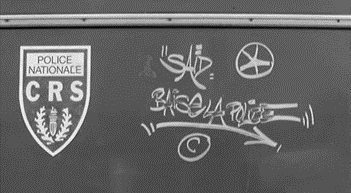 POLICE
NATIONALE
CRS
SAÏD
BAISE LA POLICE
C